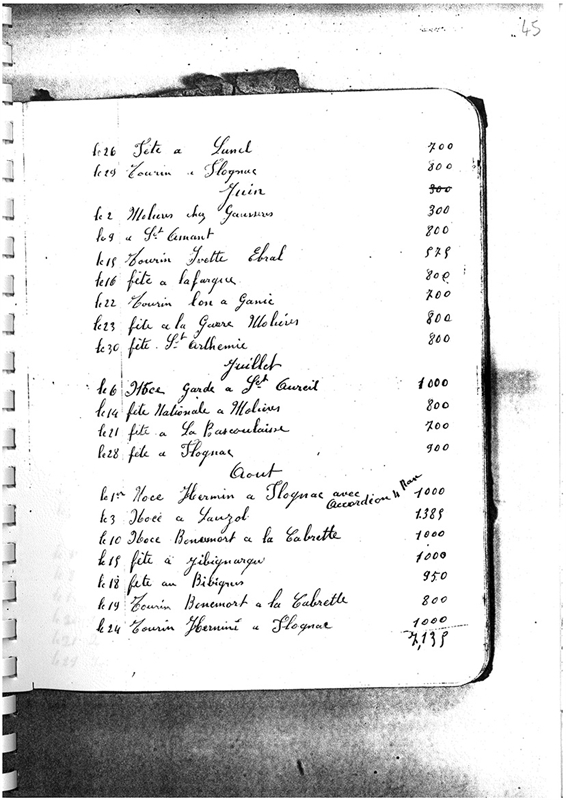 45
le 26 Fête a Lunel 700
le 29 Tourin a Flognac 800
Juin 300
le 2 Molieres chez Gausseres 300
le 9 a St Amant 800
le 15 Tourin Yvette Ebral 575
le 16 fête a lafargue 800
le 22 Tourin Con a Ganic 700
le 23 fête a la Guare Molières 800
le 30 fête St Arthemie 800
Juillet
le 6 Noce Garde a St Aureil 1000
le 14 fête Nationale a Molieres 800
le 21 fête a La Bascoulaisse 700
le 28 fete a Flognac 900
Aout
le 1er Noce Hermin a Flognac avec accordéon 4 1000
le 3 Noce a Lauzol 1385
le 10 Noce Bonemort a la Cabrette 1000
le 15 fête à 1000
le 18 fete au Bibignes 950
le 19 Tourin Bonemort a la Cabrette 800
le 24 Tourin Herminé a Flognac 1000
7,135